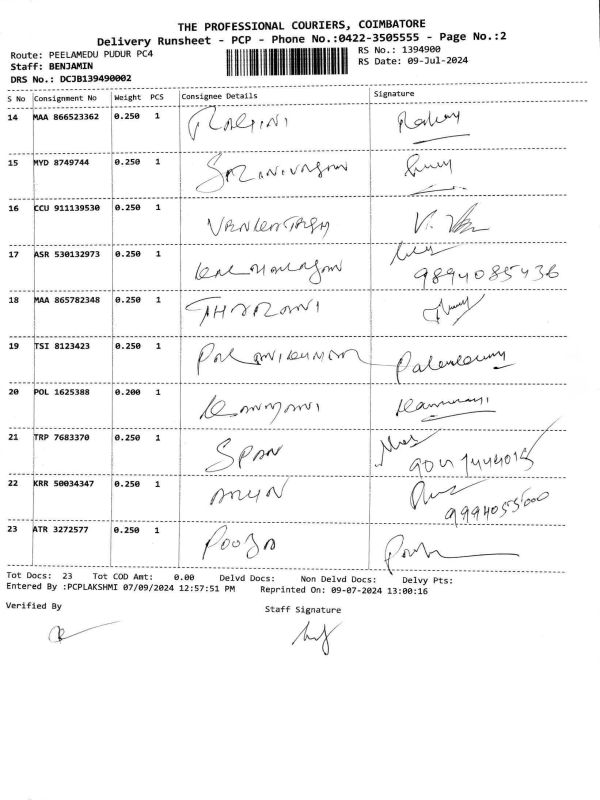 THE PROFESSIONAL COURIERS, COIMBATORE
Delivery Runsheet - PCP - Phone No.:0422-3505555 - Page No.:2
Route: PEELAMEDU PUDUR PC4 RS No.: 1394900
Staff: BENJAMIN RS Date: 09-Jul-2024
DRS No.: DCJB139490002
S No Consignment No Weight PCS Consignee Details Signature
14 MAA 866523362 0.250 1 RAGINI
15 MYD 8749744 0.250 1
16 CCU 911139530 0.250 1 VENKATESH
17 ASR 530132973 0.250 1
9894085436
18 MAA 865782348 0.250 1 THARANI
19 TSI 8123423 0.250 1 PALANIKUMAR
20 POL 1625388 0.200 1
21 TRP 7683370 0.250 1 SPAN
22 KRR 50034347 0.250 1 ARUN
23 ATR 3272577 0.250 1 POOJA
Tot Docs: 23 Tot COD Amt: 0.00 Delvd Docs: Non Delvd Docs: Delvy Pts:
Entered By :PCPLAKSHMI 07/09/2024 12:57:51 PM Reprinted On: 09-07-2024 13:00:16
Verified By Staff Signature